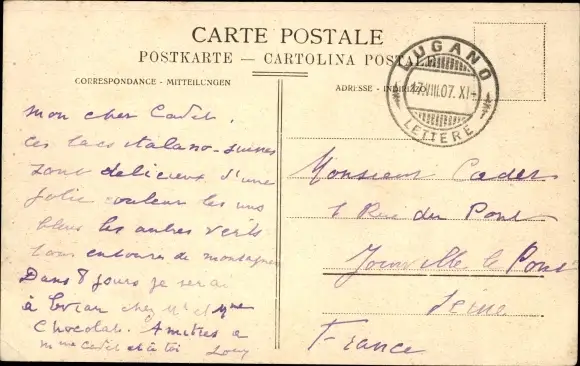 CARTE POSTALE
POSTKARTE — CARTOLINA POSTALE
CORRESPONDANCE - MITTEILUNGEN
ADRESSE - INDIRIZZO
LUGANO
17.VIII.07. XI
LETTERE
Mon cher Cadet,
ces lacs italiano-suisses
sont délicieux d'une
jolie couleur les uns
bleus les autres verts
tous entourés de montagnes
Dans 8 jours je serai
à Evian chez Mr et Mme
Chocolat. Amitiés a
Mme Cadet et à toi
Monsieur Cadet
Rue du Pont
Joinville le Pont
Seine
France